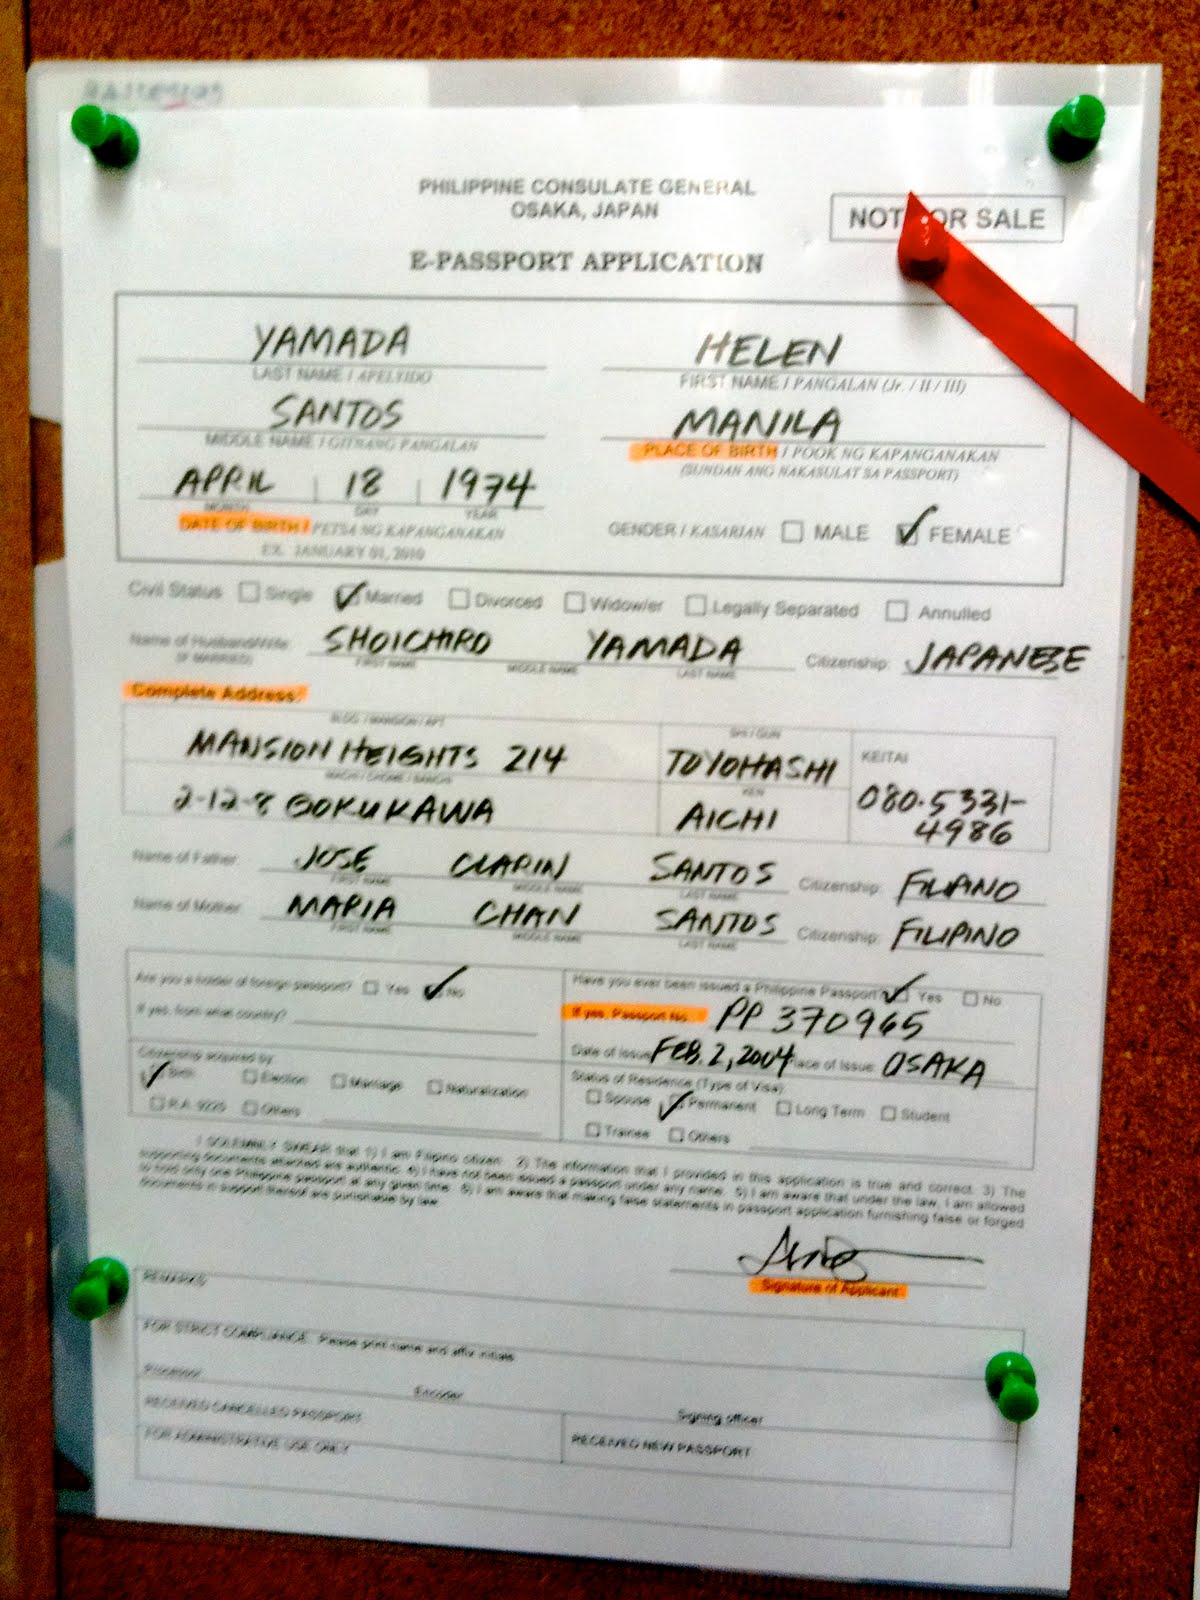 PHILIPPINE CONSULATE GENERAL
OSAKA, JAPAN
NOT FOR SALE
E-PASSPORT APPLICATION
YAMADA HELEN
LAST NAME / APELYIDO FIRST NAME / PANGALAN (Jr. / II / III)
SANTOS MANILA
MIDDLE NAME / GITNANG PANGALAN PLACE OF BIRTH / POOK NG KAPANGANAKAN
(SUNDAN ANG NAKASULAT SA PASSPORT)
APRIL 18 1974
MONTH DAY YEAR
DATE OF BIRTH / PETSA NG KAPANGANAKAN GENDER / KASARIAN MALE FEMALE
EX. JANUARY 01, 2010
Civil Status Single Married Divorced Widow/er Legally Separated Annulled
Name of Husband/Wife SHOICHIRO YAMADA Citizenship: JAPANESE
(IF MARRIED) FIRST NAME MIDDLE NAME LAST NAME
Complete Address:
BLDG / MANSION / APT SHI / GUN KEITAI
MANSION HEIGHTS 214 TOYOHASHI
MACHI / CHOME / BANCHI KEN
2-12-8 GOKUKAWA AICHI 080-5331-
4986
Name of Father: JOSE CLARIN SANTOS Citizenship: FILIPINO
FIRST NAME MIDDLE NAME LAST NAME
Name of Mother: MARIA CHAN SANTOS Citizenship: FILIPINO
FIRST NAME MIDDLE NAME LAST NAME
Are you a holder of foreign passport? Yes No
If yes, from what country?
Have you ever been issued a Philippine Passport? Yes No
If yes, Passport No. PP 370965
Date of Issue FEB. 2, 2004 Place of Issue: OSAKA
Citizenship acquired by:
Birth Election Marriage Naturalization
R.A. 9225 Others
Status of Residence (Type of Visa)
Spouse Permanent Long Term Student
Trainee Others
I SOLEMNLY SWEAR that 1) I am Filipino citizen. 2) The information that I provided in this application is true and correct. 3) The
supporting documents attached are authentic. 4) I have not been issued a passport under any name. 5) I am aware that under the law, I am allowed
to hold only one Philippine passport at any given time. 6) I am aware that making false statements in passport application furnishing false or forged
documents in support thereof are punishable by law.
Signature of Applicant
REMARKS
FOR STRICT COMPLIANCE: Please print name and affix initials
Processor Encoder Signing officer
RECEIVED CANCELLED PASSPORT
FOR ADMINISTRATIVE USE ONLY
RECEIVED NEW PASSPORT